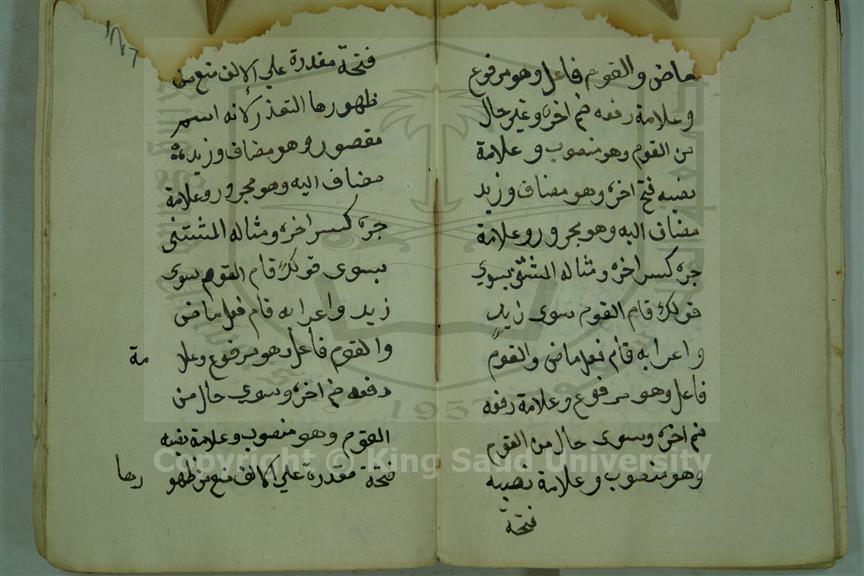 ماض والقوم فاعل وهو مرفوع
وعلامة رفعه ضم اخره وغير حال
من القوم وهو منصوب وعلامة
نصبه فتح اخره وهو مضاف وزيد
مضاف اليه وهو مجرور وعلامة
جره كسر اخره ومثاله المستثنى بسوي
قولك قام القوم سوى زيد
واعرابه قام فعل ماض والقوم
فاعل وهو مرفوع وعلامة رفعه
ضم اخره وسوى حال من القوم
وهو منصوب وعلامة نصبه
فتحة
فتحة مقدرة علي الالف منع من
ظهورها التعذر لأنه اسم
مقصور وهو مضاف وزيد
مضاف اليه وهو مجرور وعلامة
جره كسر اخره ومثاله المستثنى
بسوى قولك قام القوم سوى
زيد واعرابه قام فعل ماض
والقوم فاعل وهو مرفوع وعلا مة
رفعه ضم اخره وسوي حال من
القوم وهو منصوب وعلامة نصبه
فتحة مقدرة علي الالف منع من ظهو رها
Copyright © King Saud University
1957